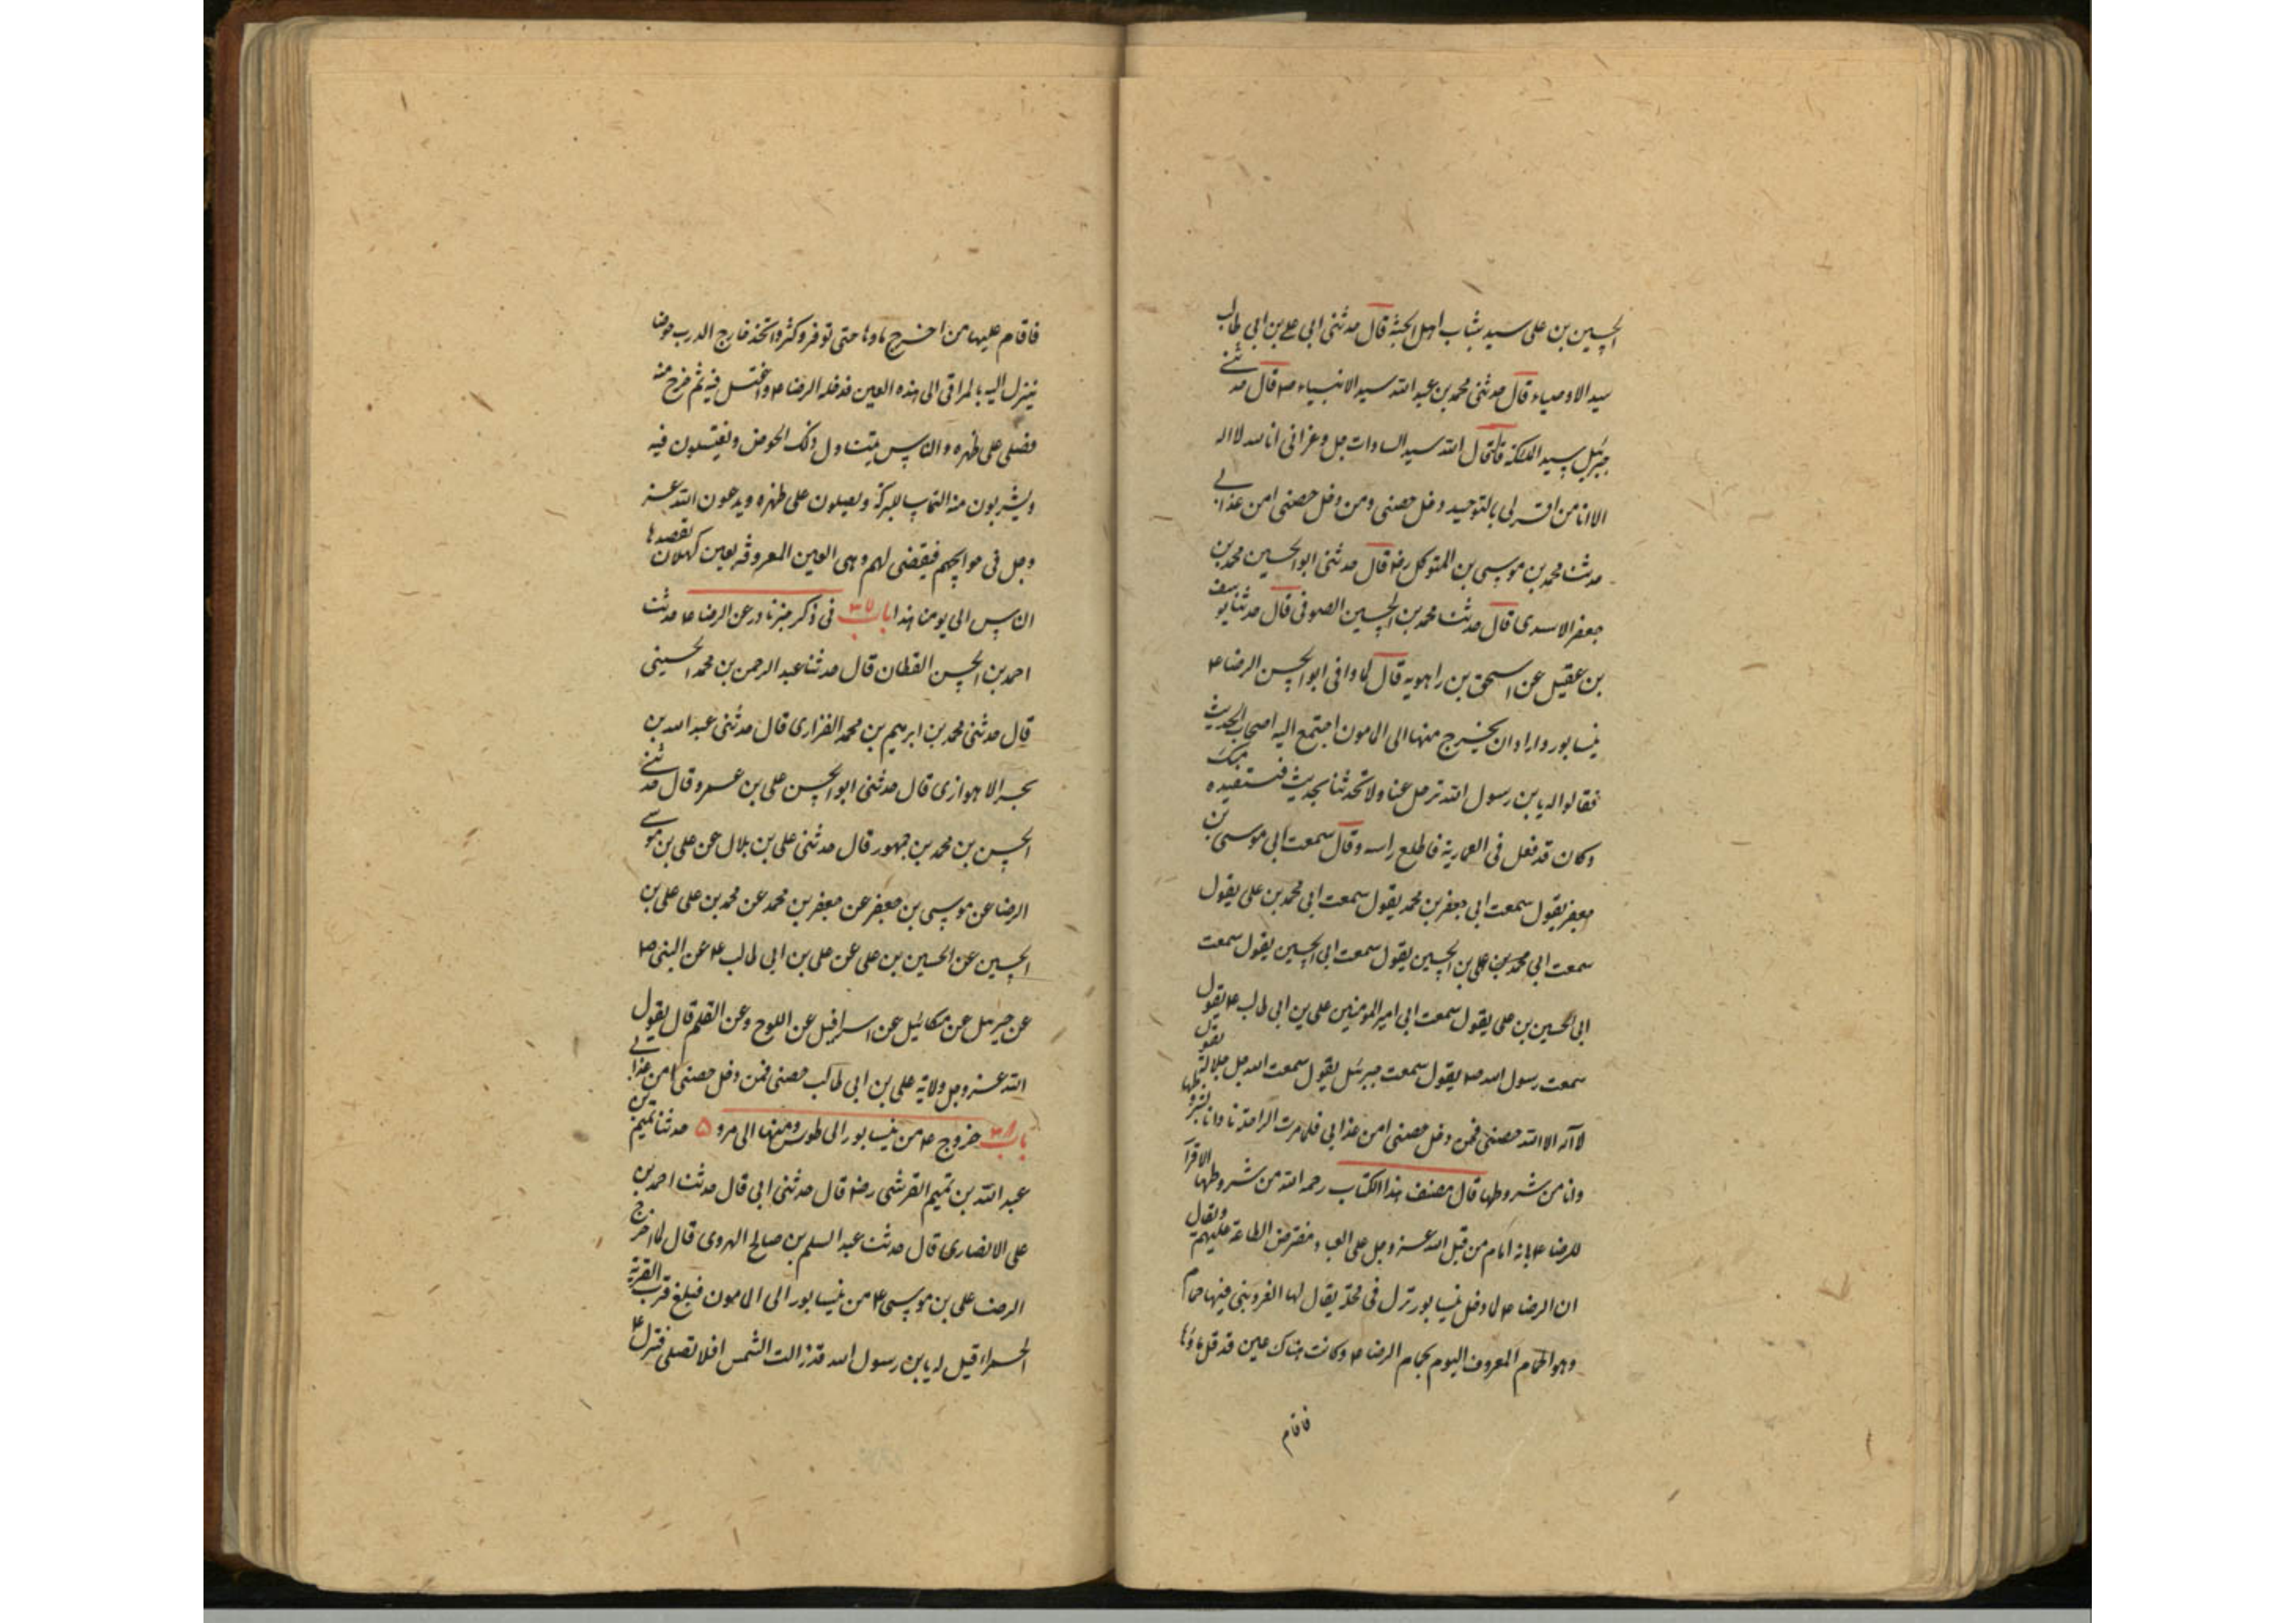 الحسين بن علي سيد شباب اهل الجنة قال حدثني ابي علي بن ابي طالب
سيد الاوصياء قال حدثني محمد بن عبد الله سيد الانبياء ص قال حدثني
جبرئيل سيد الملئكة قال قال الله سيد السادات جل وعز اني انا الله لا اله
الا انا من اقر لي بالتوحيد دخل حصني ومن دخل حصني امن عذابي
حدثنا محمد بن موسى بن المتوكل رضه قال حدثني ابو الحسين محمد بن
جعفر الاسدي قال حدثنا محمد بن الحسين الصوفي قال حدثنا يوسف
بن عقيل عن اسحق بن راهويه قال لما وافى ابو الحسن الرضا ع
نيسابور واراد ان يخرج منها الى المامون اجتمع اليه اصحاب الحديث
فقالوا له يا بن رسول الله ترحل عنا ولا تحدثنا بحديث فنستفيده منك
وكان قد قعد في العمارية فاطلع راسه وقال سمعت ابي موسى بن
جعفر يقول سمعت ابي جعفر بن محمد يقول سمعت ابي محمد بن علي يقول
سمعت ابي محمد بن علي بن الحسين يقول سمعت ابي الحسين يقول سمعت
ابي الحسين بن علي يقول سمعت ابي امير المومنين علي بن ابي طالب ع يقول
سمعت رسول الله ص يقول سمعت جبرئيل يقول سمعت الله جل جلاله يقول
لا اله الا الله حصني فمن دخل حصني امن عذابي فلما مرت الراحلة نادانا بشروطها
وانا من شروطها قال مصنف هذا الكتاب رحمه الله من شروطها الاقرار
للرضا ع بانه امام من قبل الله عز وجل على العباد مفترض الطاعة عليهم ويقال
ان الرضا ع لما دخل نيسابور نزل في محلة يقال لها الفرويني فيها حمام
وهو الحمام المعروف اليوم بحمام الرضا ع وكانت هناك عين قد قل ماؤها
فاقام
فاقام عليها من اخرج ماوها حتى توفر وكثر واتخذ خارج الدرب حوضا
ينزل اليه بالمراقي الى هذه العين فدخله الرضا ع واغتسل فيه ثم خرج منه
فصلى على ظهره والناس يتناول ذلك الحوض ويغتسلون فيه
ويشربون منه التماسا للبركة ويصلون على ظهره ويدعون الله عز
وجل في حوائجهم فيقضى لهم وهي العين المعروفة بعين كهلان يقصدها
الناس الى يومنا هذا باب ٣٧ في ذكر خبر نادر عن الرضا ع حدثنا
احمد بن الحسن القطان قال حدثنا عبد الرحمن بن محمد الحسيني
قال حدثني محمد بن ابرهيم بن محمد الفزاري قال حدثني عبد الله بن
بحر الاهوازي قال حدثني ابو الحسن علي بن عمرو قال حدثني
الحسن بن محمد بن جمهور قال حدثني علي بن بلال عن علي بن موسى
الرضا عن موسى بن جعفر عن جعفر بن محمد عن محمد بن علي علي بن
الحسين عن الحسين بن علي عن علي بن ابي طالب ع عن النبي ص
عن جبرئيل عن ميكائيل عن اسرافيل عن اللوح وعن القلم قال يقول
الله عز وجل ولاية علي بن ابي طالب حصني فمن دخل حصني امن عذابي
باب ٣٨ خروج ع من نيسابور الى طوس ومنها الى مرو ٥ حدثنا تميم بن
عبد الله بن تميم القرشي رضه قال حدثني ابي قال حدثنا احمد بن
علي الانصاري قال حدثنا عبد السلم بن صالح الهروي قال لما خرج
الرضا علي بن موسى ع من نيسابور الى المامون فبلغ قرب القرية
الحمراء قيل له يا بن رسول الله قد زالت الشمس افلا تصلي فنزل ع